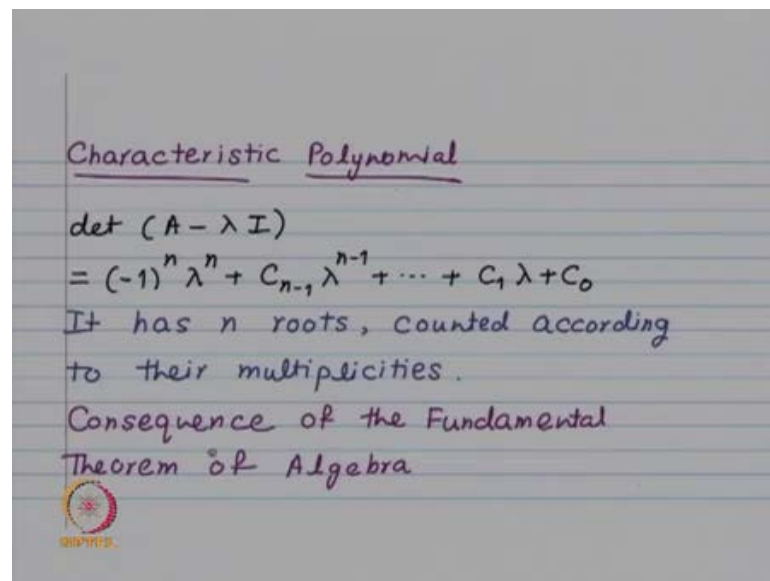 Characteristic Polynomial
det (A - λ I)
= (-1)ⁿ λⁿ + Cₙ₋₁ λⁿ⁻¹ + ⋯ + C₁ λ + C₀
It has n roots, counted according
to their multiplicities.
Consequence of the Fundamental
Theorem of Algebra